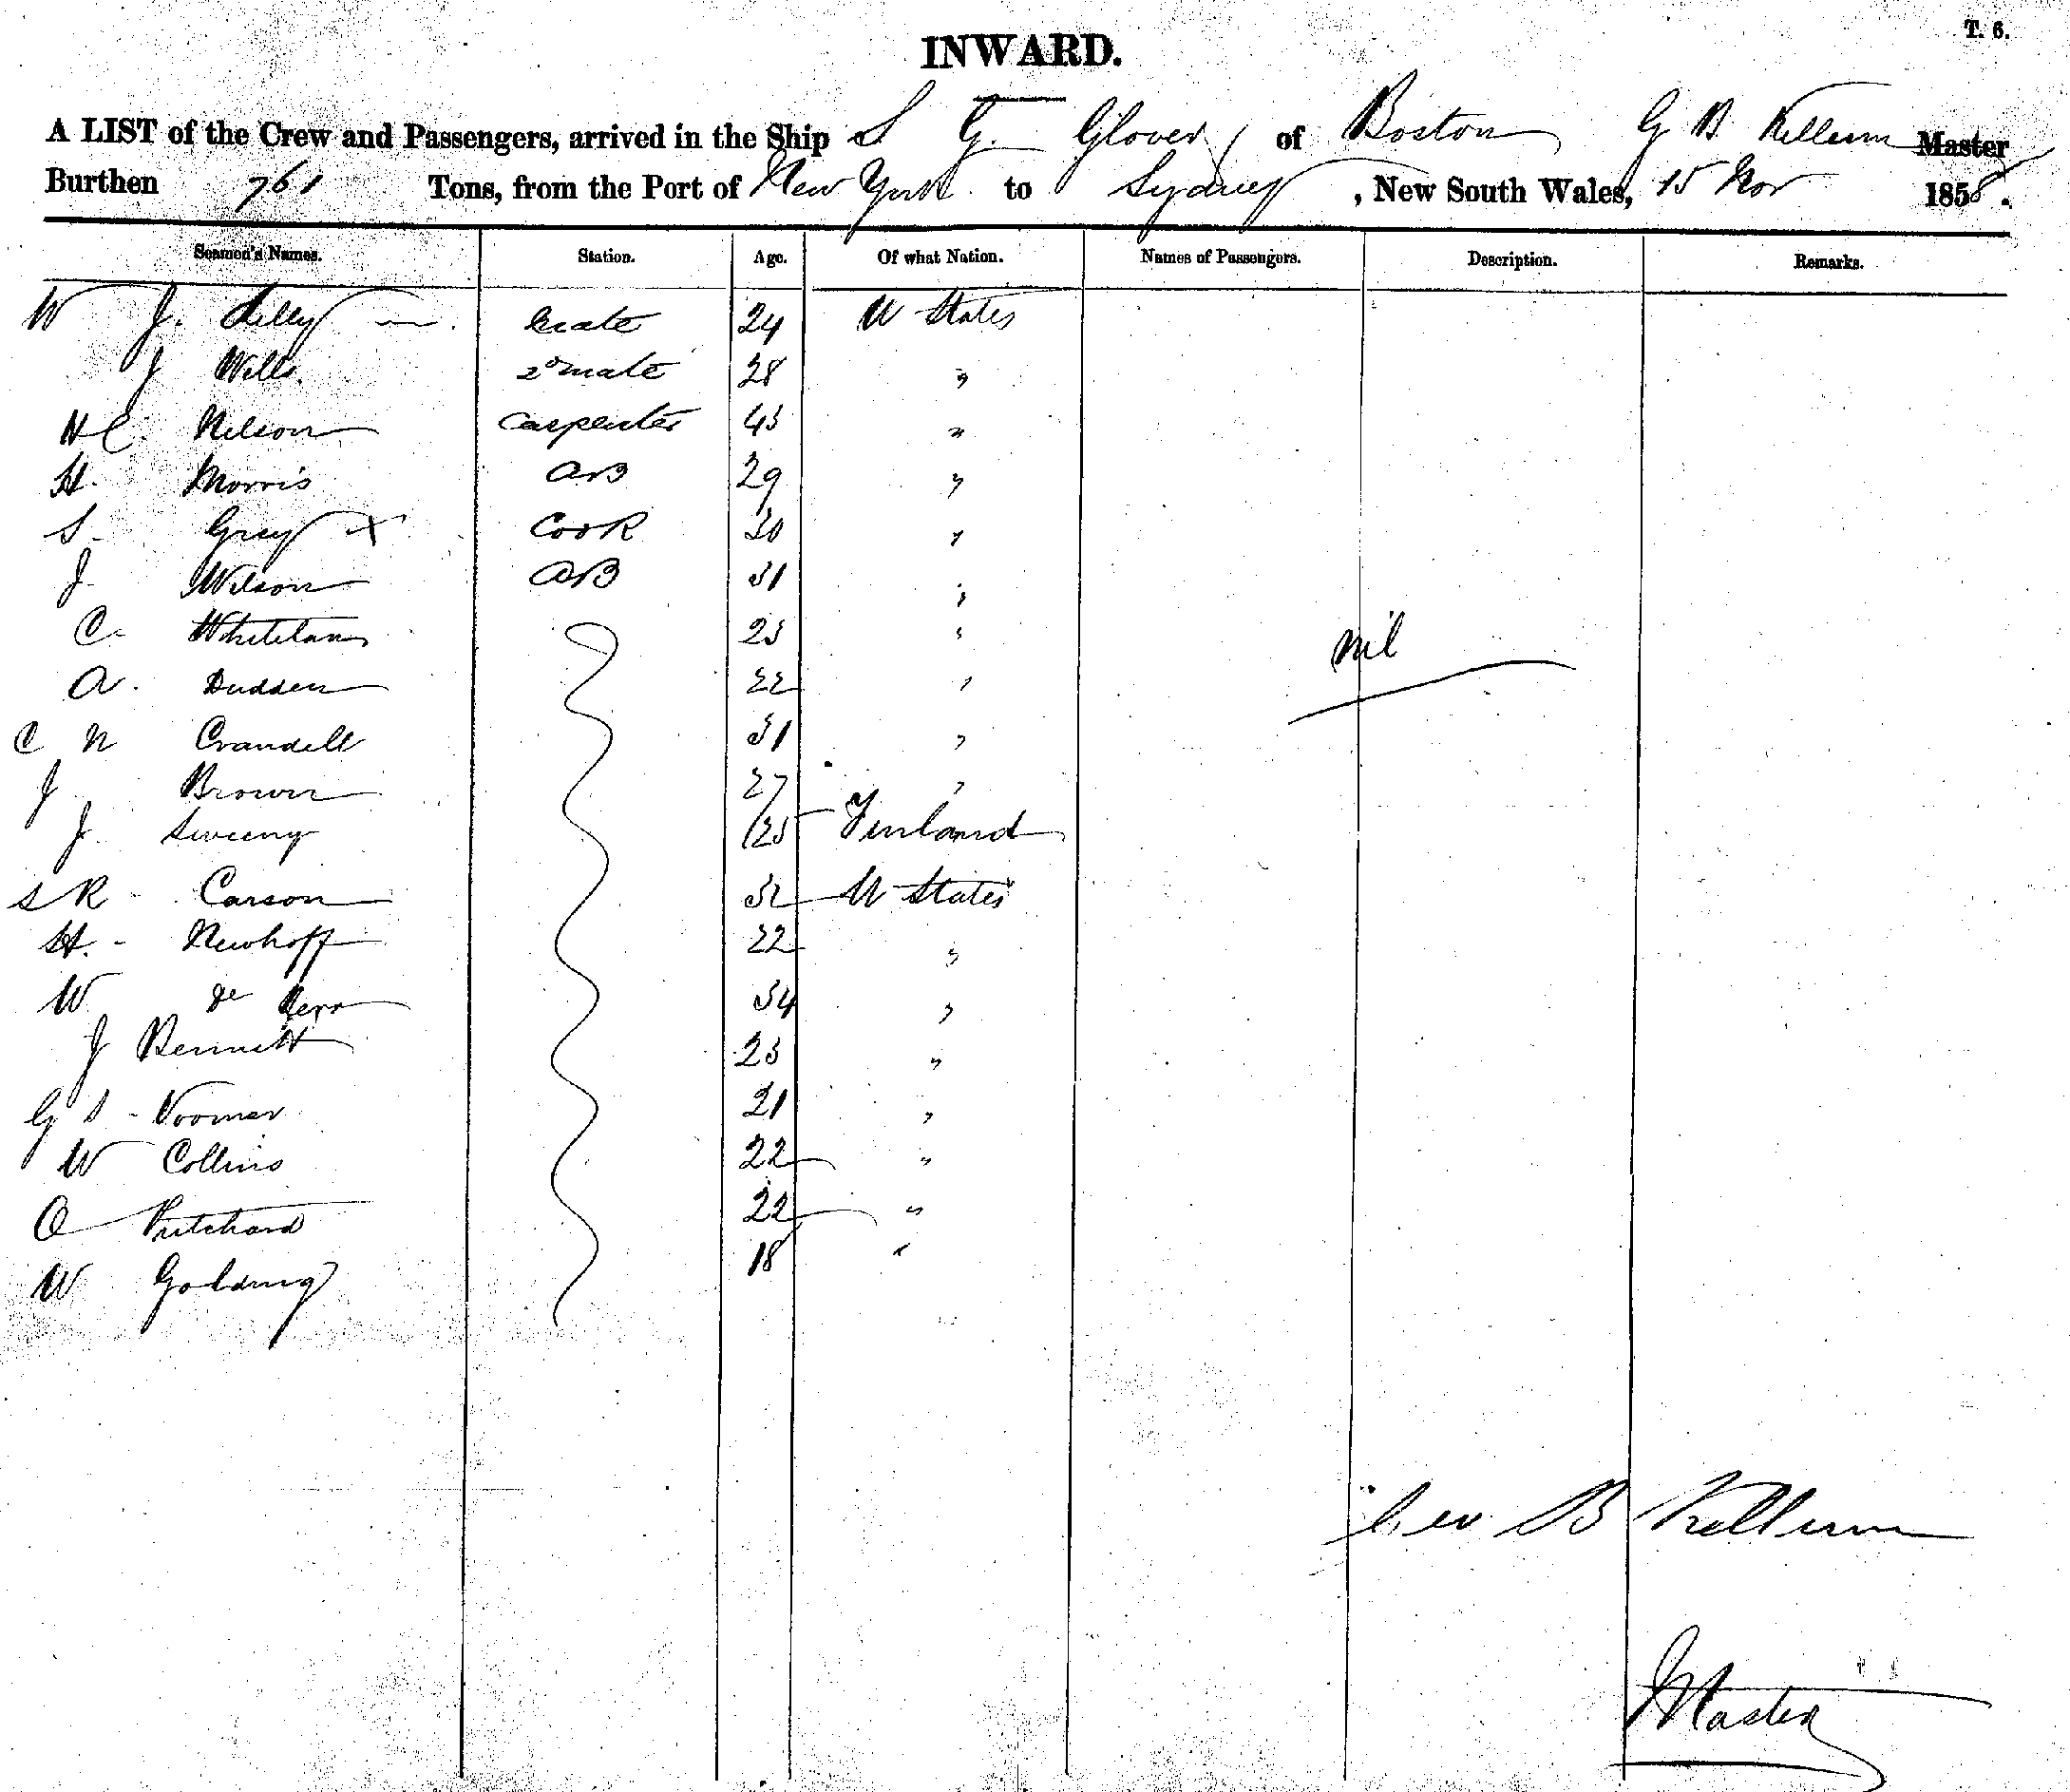 T. 6.
INWARD.
A LIST of the Crew and Passengers, arrived in the Ship S G. Glover, of Boston G B Kellum Master
Burthen 761 Tons, from the Port of New York to Sydney, New South Wales, 15 Nov 1858.
Seamen's Names. Station. Age. Of what Nation. Names of Passengers. Description. Remarks.
W J. Lilly mate 24 U States
J Wills 2d mate 28 "
H C. Nelson Carpenter 43 "
H. Morris AB 29 "
S. Grey x Cook 30 "
J. Wilson AB 31 "
C. 23 "
nil
A. Dudden 22 "
C N Crandell 31 "
J Brown 27 "
J. Sweeny 25 Finland
S R Carson 32 U States
H. Newhoff 22 "
W de 34 "
J Bennett 23 "
G S Voomer 21 "
W Collins 22 "
O Pritchard 22 "
W Golding 18 "
Geo B Kellum
Master